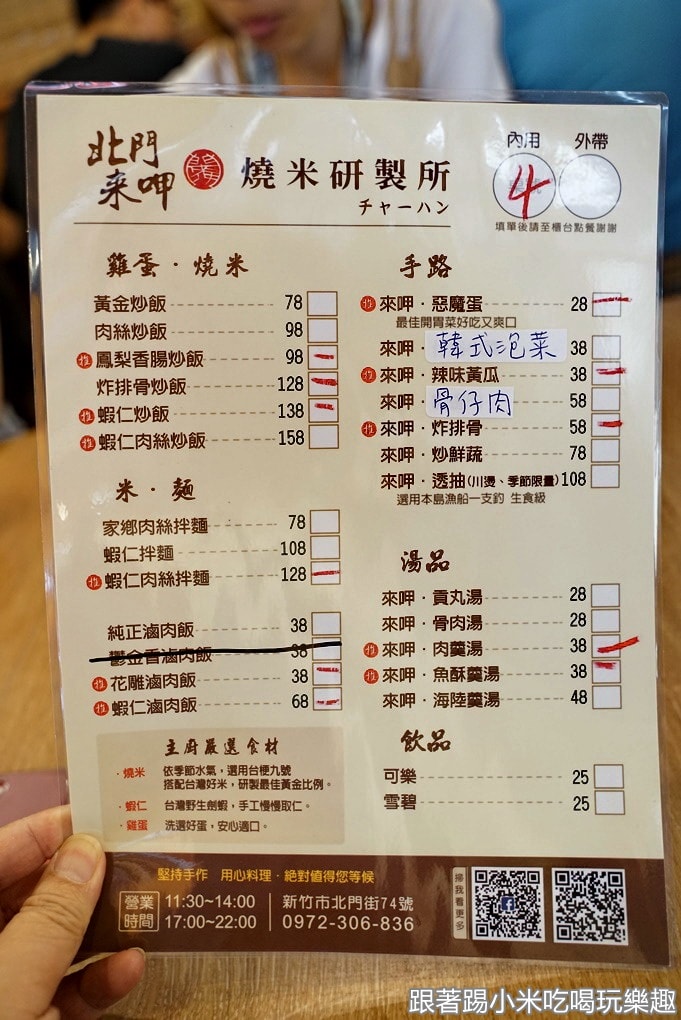 北門
来呷
燒米研製所
チャーハン
內用 外帶
4
填單後請至櫃台點餐謝謝
雞蛋·燒米
黃金炒飯 78
肉絲炒飯 98
推 鳳梨香腸炒飯 98
炸排骨炒飯 128
推 蝦仁炒飯 138
推 蝦仁肉絲炒飯 158
米·麵
家鄉肉絲拌麵 78
蝦仁拌麵 108
推 蝦仁肉絲拌麵 128
純正滷肉飯 38
鬱金香滷肉飯 38
推 花雕滷肉飯 38
推 蝦仁滷肉飯 68
主廚嚴選食材
·燒米 依季節水氣,選用台梗九號
搭配台灣好米,研製最佳黃金比例。
·蝦仁 台灣野生劍蝦,手工慢慢取仁。
·雞蛋 洗選好蛋,安心適口。
手路
推 來呷·惡魔蛋 28
最佳開胃菜好吃又爽口
來呷·韓式泡菜 38
推 來呷·辣味黃瓜 38
來呷·骨仔肉 58
推 來呷·炸排骨 58
來呷·炒鮮蔬 78
來呷·透抽(川燙、季節限量) 108
選用本島漁船一支釣 生食級
湯品
來呷·貢丸湯 28
來呷·骨肉湯 28
推 來呷·肉羹湯 38
推 來呷·魚酥羹湯 38
來呷·海陸羹湯 48
飲品
可樂 25
雪碧 25
堅持手作 用心料理·絕對值得您等候
營業時間 11:30~14:00
17:00~22:00
新竹市北門街74號
0972-306-836
掃我看更多
跟著踢小米吃喝玩樂趣